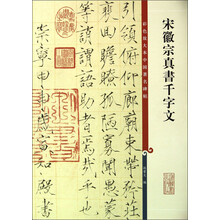 彩色放大本中國著名碑帖
宋徽宗真書千字文
引領俯仰廊廟束帶矜莊
徘徊瞻眺孤陋寡聞愚蒙
等誚謂語助者焉哉乎也
崇寧甲申歲宣和殿書